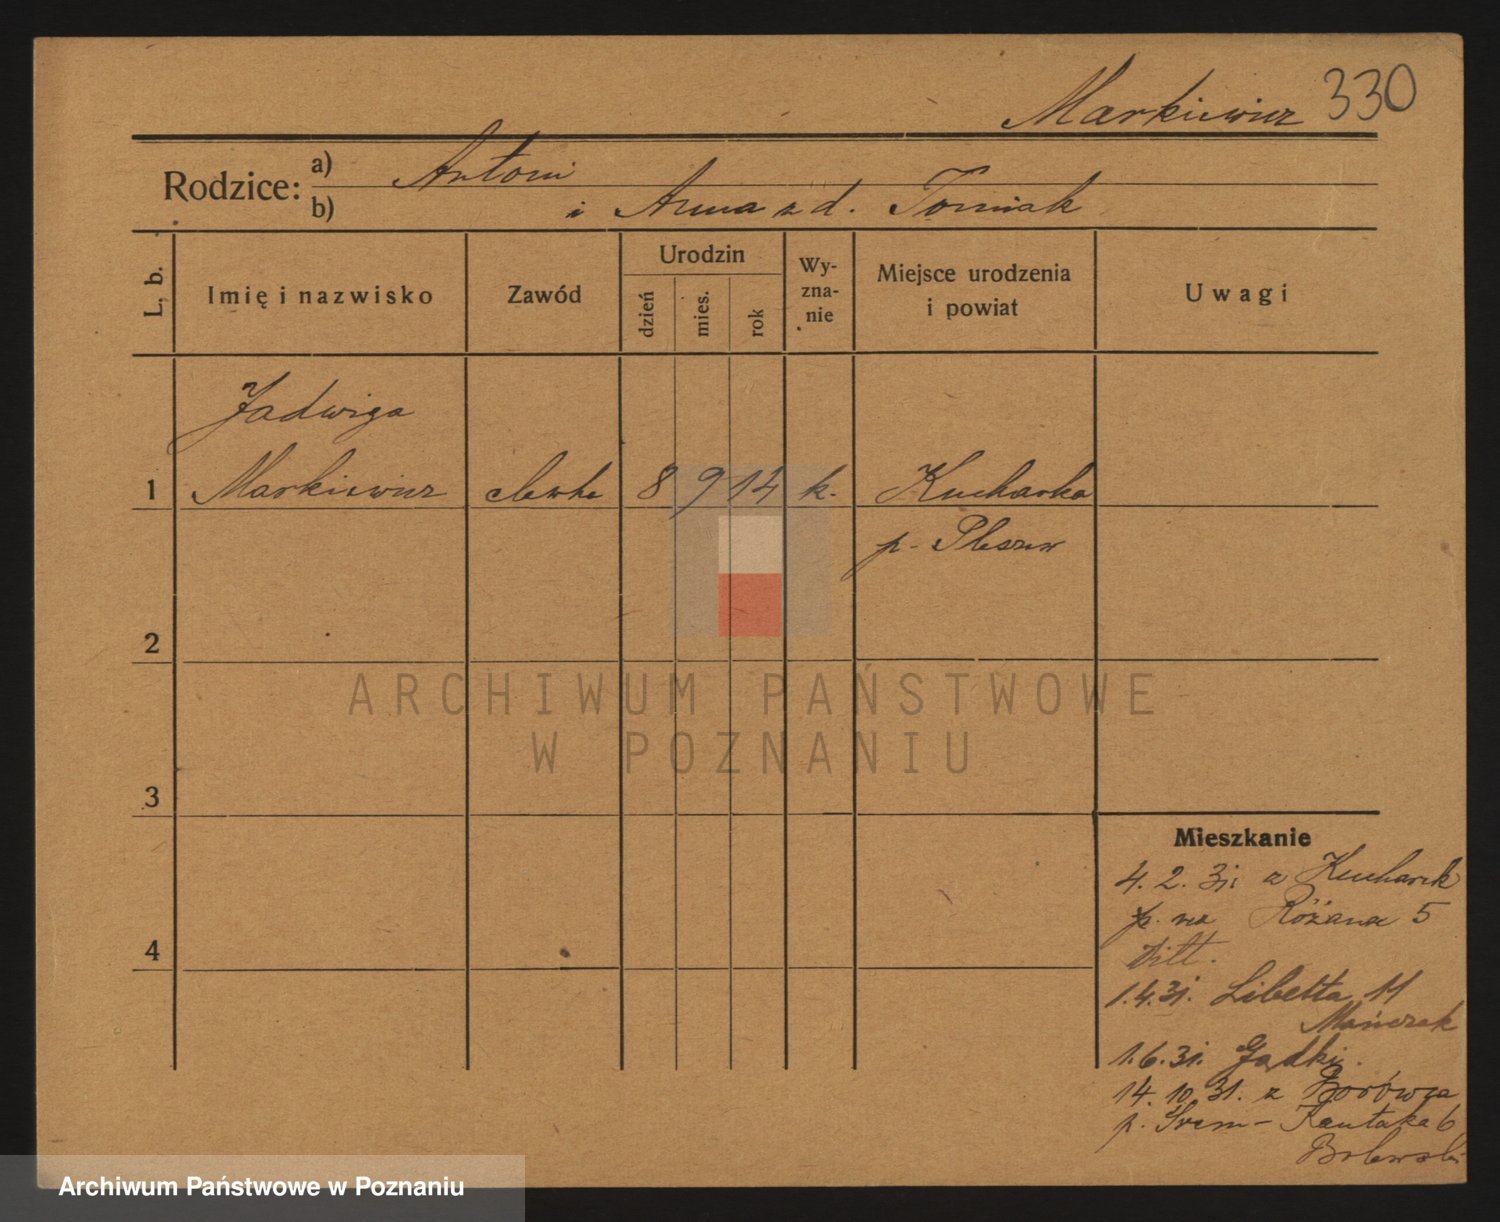 Markiewicz 330
Rodzice: a) Antoni
b) i Anna z d. Tomiak
L. b.
Imię i nazwisko
Zawód
Urodzin
dzień
mies.
rok
Wy-
zna-
nie
Miejsce urodzenia
i powiat
Uwagi
Jadwiga
1 Markiewicz 8 9 14 k. Kucharka
p. Pleszew
2
3
4
Mieszkanie
4. 2. 31. z Kucharek
p. na Różana 5
1.4.31. Libelta 11
Mańczak
1.6.31. Gądki.
14. 10. 31. z Borówca
p. Śrem - 6
Bolewski
ARCHIWUM PAŃSTWOWE
W POZNANIU
Archiwum Państwowe w Poznaniu